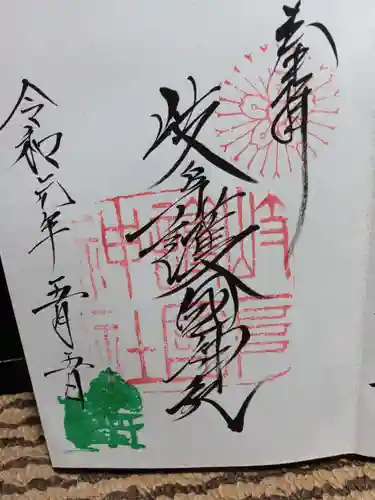 奉拝
岐阜護國神社
令和元年五月五日
岐阜
護國
神社